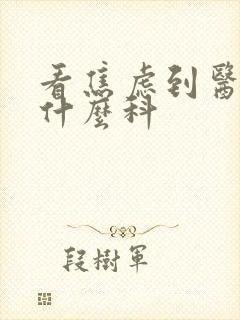 看焦虑到醫
什麼科
段樹軍